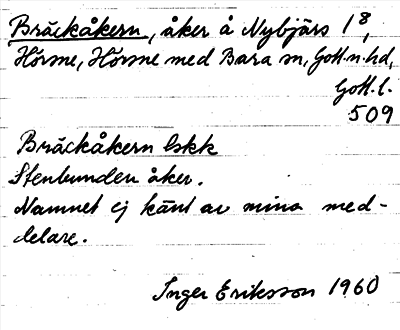 Bräckåkern, åker å Nybjärs 1⁸,
Hörsne, Hörsne med Bara sn, Gotl. n. hd,
Gotl. l.
509
Bräckåkern lskk
Stenbunden åker.
Namnet ej känt av mina med-
delare.
Inger Eriksson 1960